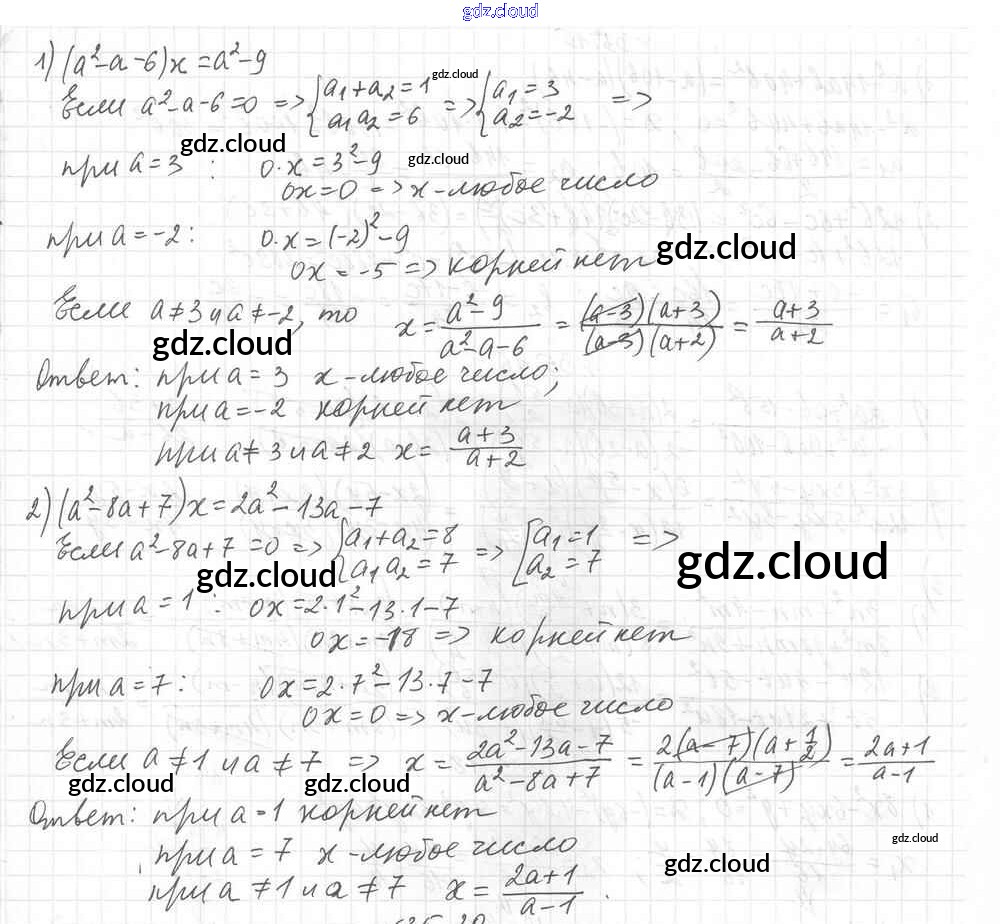 gdz.cloud
1) (a²-a-6)x=a²-9
gdz.cloud
Если a²-a-6=0 => { a₁+a₂=1 a₁a₂=6 => { a₁=3 a₂=-2 =>
gdz.cloud
gdz.cloud
при a=3: 0·x=3²-9
0x=0 => x-любое число
при a=-2: 0·x=(-2)²-9
gdz.cloud
0x=-5 => корней нет
Если a≠3 и a≠-2, то x = (a²-9)/(a²-a-6) = ((a-3)(a+3))/((a-3)(a+2)) = (a+3)/(a+2)
gdz.cloud
Ответ: при a=3 x-любое число;
при a=-2 корней нет
при a≠3 и a≠2 x = (a+3)/(a+2)
2) (a²-8a+7)x=2a²-13a-7
Если a²-8a+7=0 => { a₁+a₂=8 a₁a₂=7 => [ a₁=1 a₂=7 =>
gdz.cloud
gdz.cloud
при a=1: 0x=2·1²-13·1-7
0x=-18 => корней нет
при a=7: 0x=2·7²-13·7-7
0x=0 => x-любое число
Если a≠1 и a≠7 => x = (2a²-13a-7)/(a²-8a+7) = (2(a-7)(a+1/2))/((a-1)(a-7)) = (2a+1)/(a-1)
gdz.cloud
gdz.cloud
Ответ: при a=1 корней нет
gdz.cloud
при a=7 x-любое число
gdz.cloud
при a≠1 и a≠7 x = (2a+1)/(a-1).